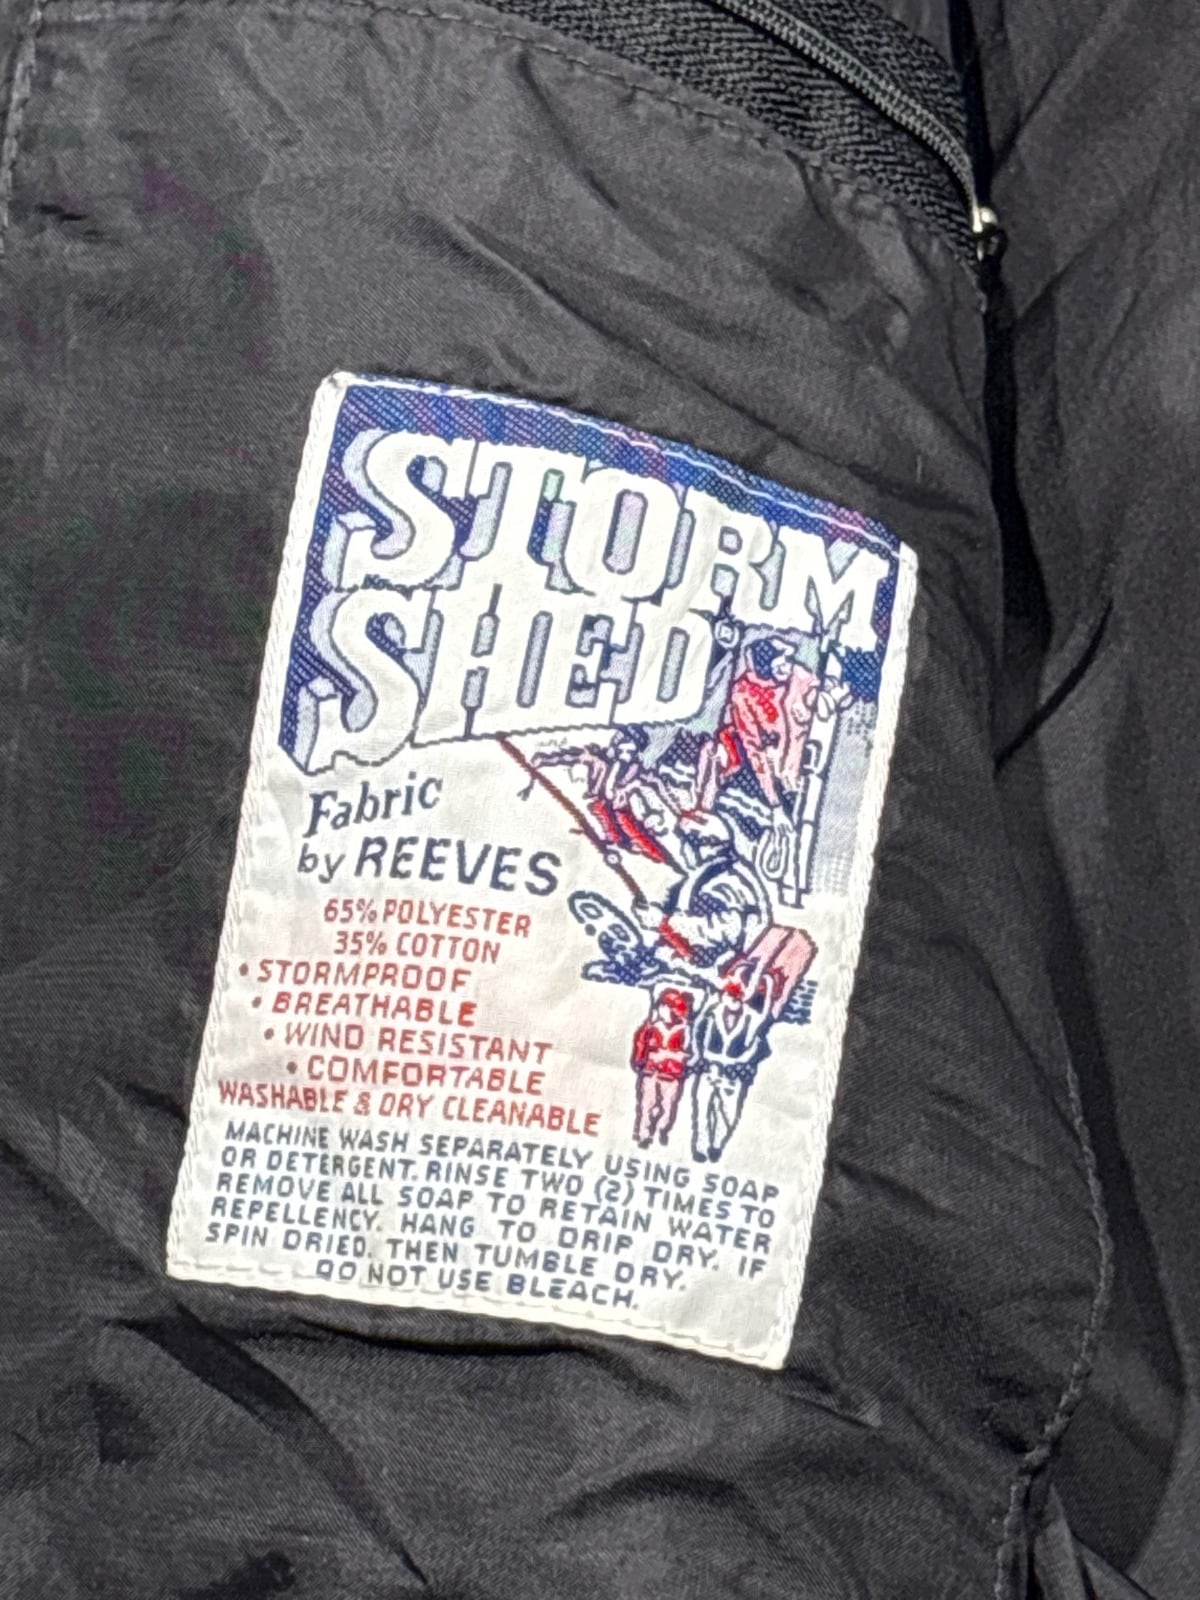 STORM
SHED
Fabric
by REEVES
65% POLYESTER
35% COTTON
• STORMPROOF
• BREATHABLE
• WIND RESISTANT
• COMFORTABLE
WASHABLE & DRY CLEANABLE
MACHINE WASH SEPARATELY USING SOAP
OR DETERGENT. RINSE TWO (2) TIMES TO
REMOVE ALL SOAP TO RETAIN WATER
REPELLENCY. HANG TO DRIP DRY. IF
SPIN DRIED, THEN TUMBLE DRY.
DO NOT USE BLEACH.